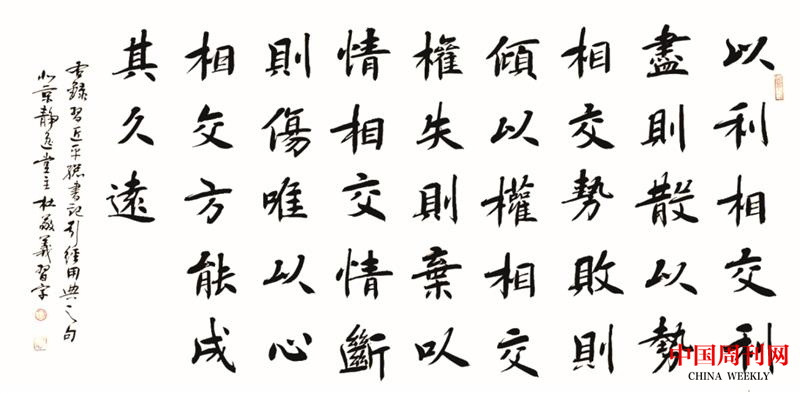 以利相交利
盡則散以勢
相交勢敗則
傾以權相交
權失則棄以
情相交情斷
則傷唯以心
相交方能成
其久遠
錄習近平總書記引經用典之句
北京靜逸堂主杜敬義習字
中国周刊网
CHINA WEEKLY